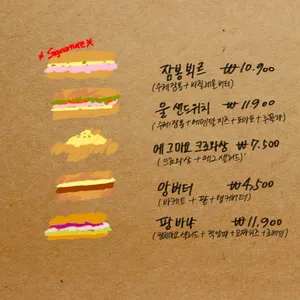 * Signature *
잠봉뵈르 ₩10.900
(수제잠봉 + 바질레몬버터)
울 샌드위치 ₩11.900
(수제잠봉 + 에멘탈치즈 + 토마토 +
에그마요 크로와상 ₩7.500
(크로와상 + 에그샐러드)
앙버터 ₩4,500
(바게트 + 팥 + 앵커버터)
팡바냐 ₩11,900